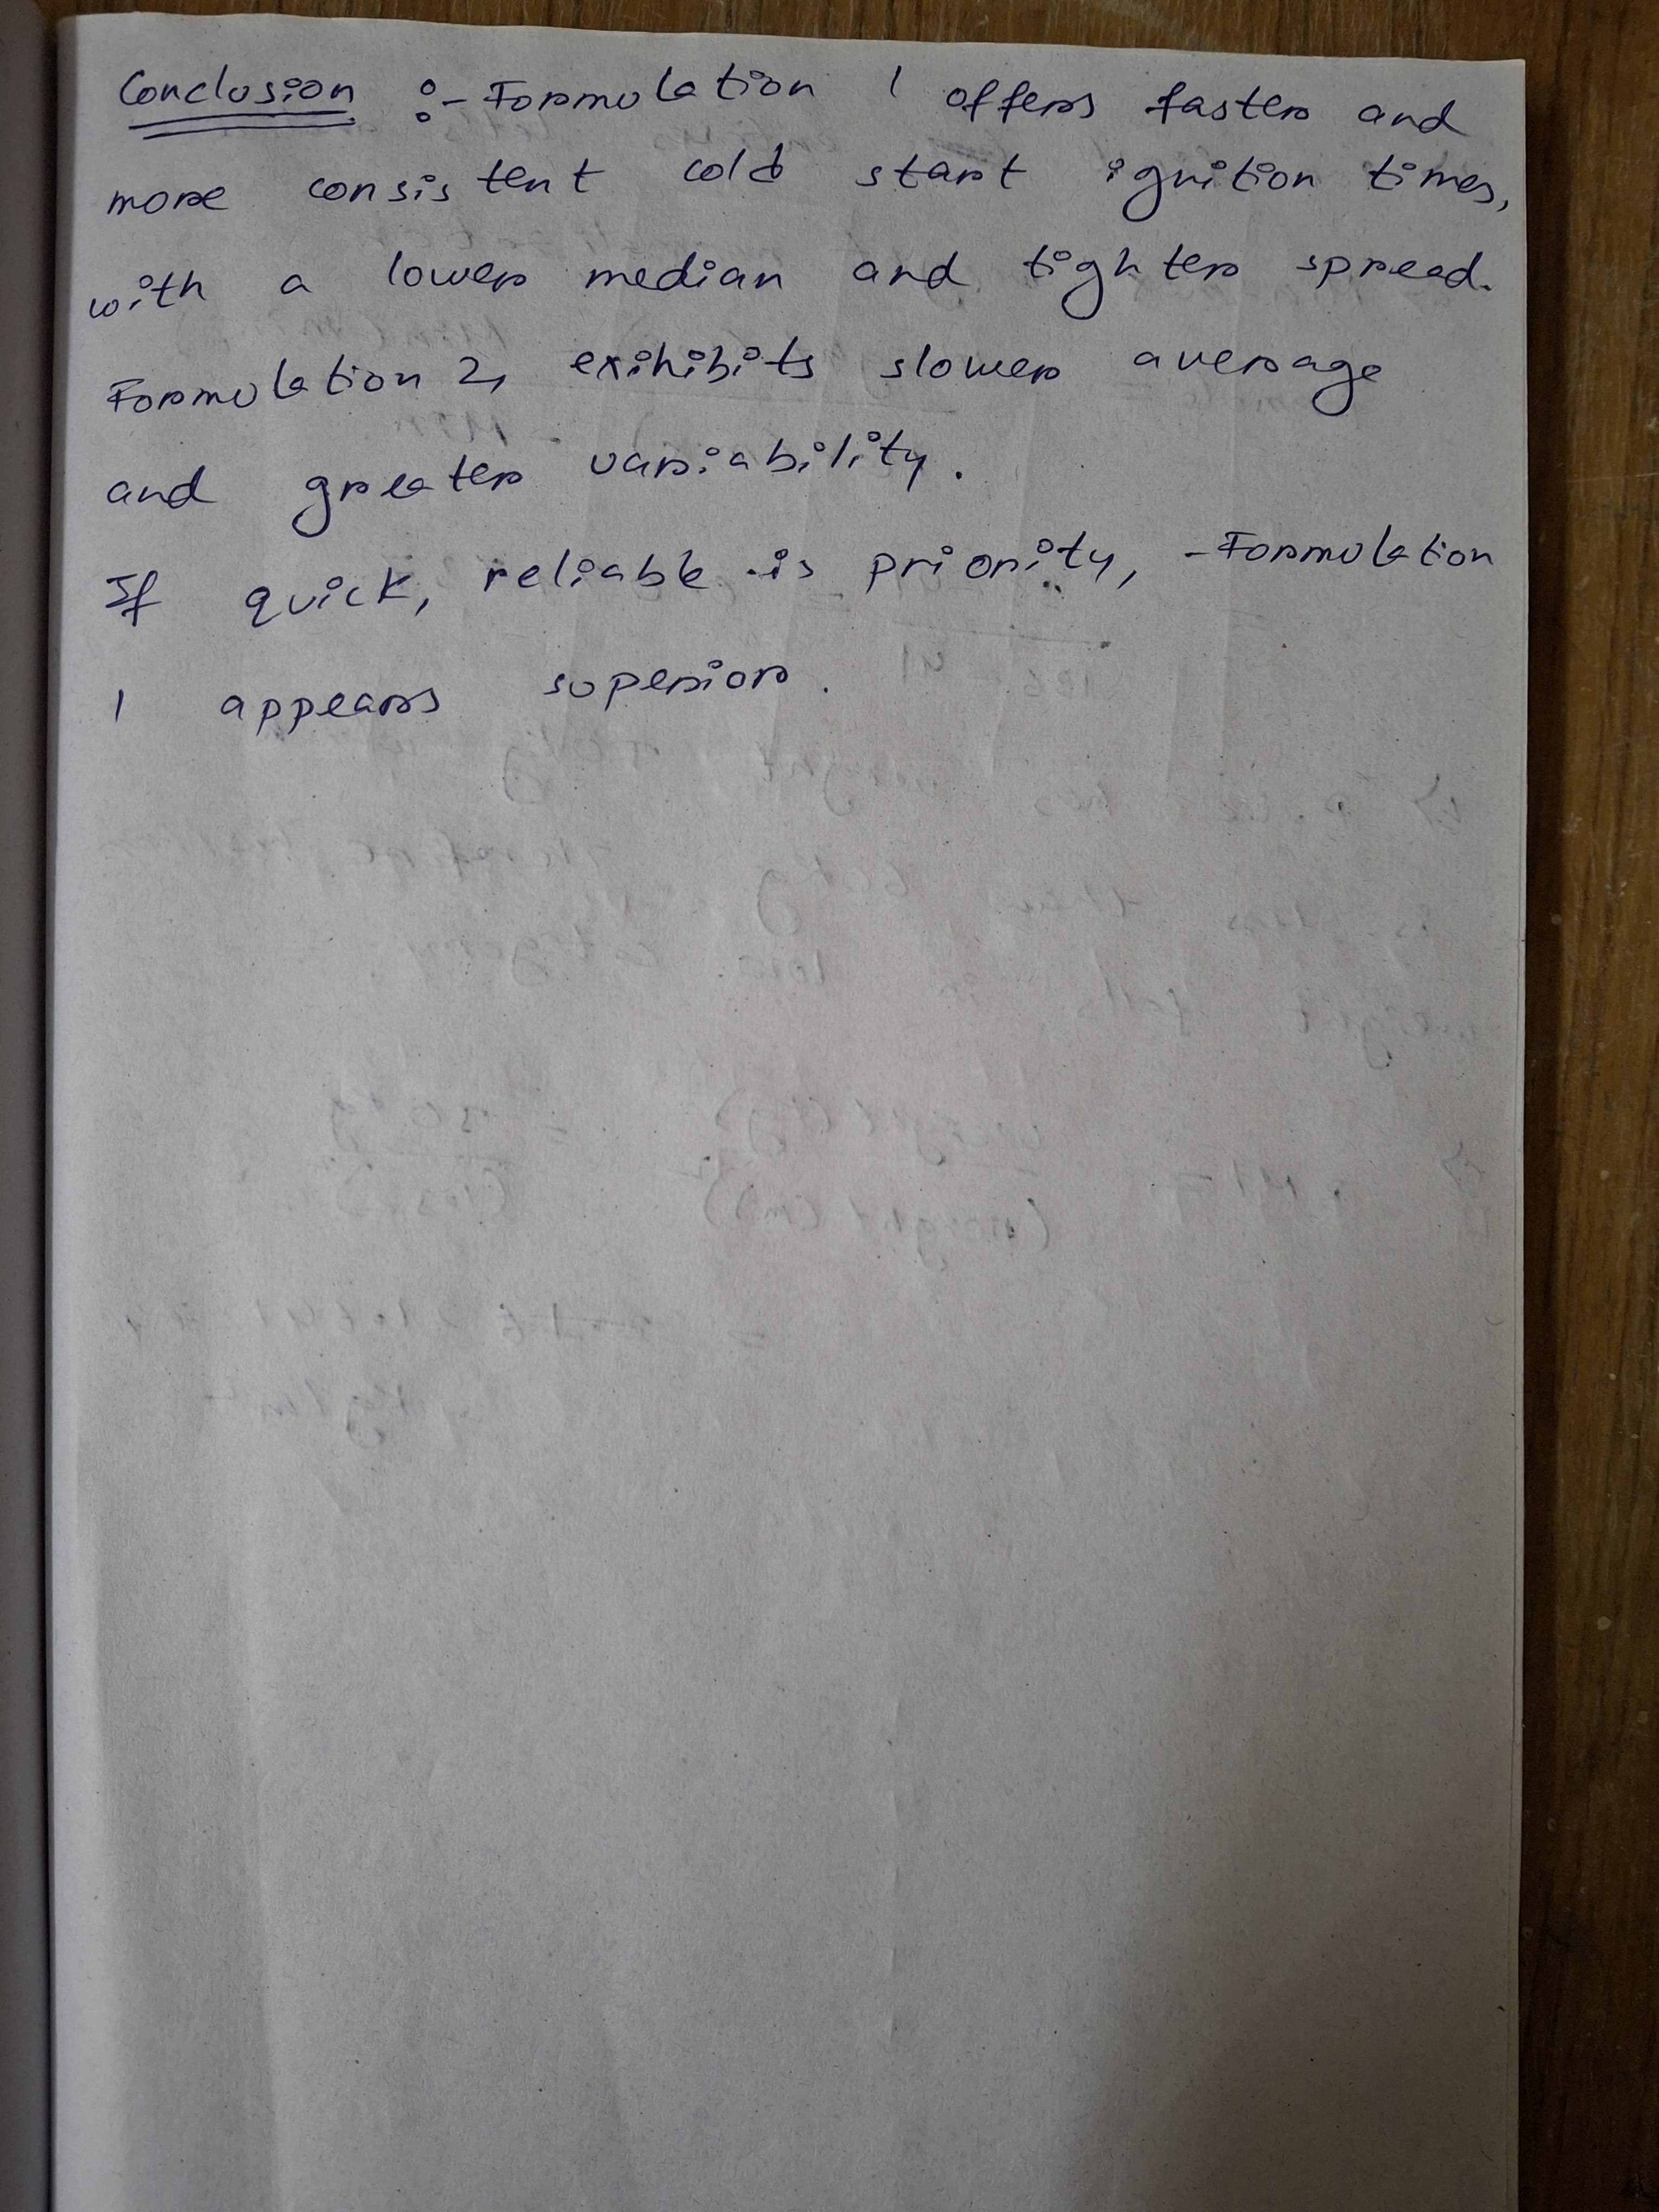 Conclusion :- Formulation 1 offers faster and
more consistent cold start ignition times,
with a lower median and tighter spread.
Formulation 2, exihibits slower average
and greater variability.
If quick, reliable is priority, Formulation
1 appears superior.